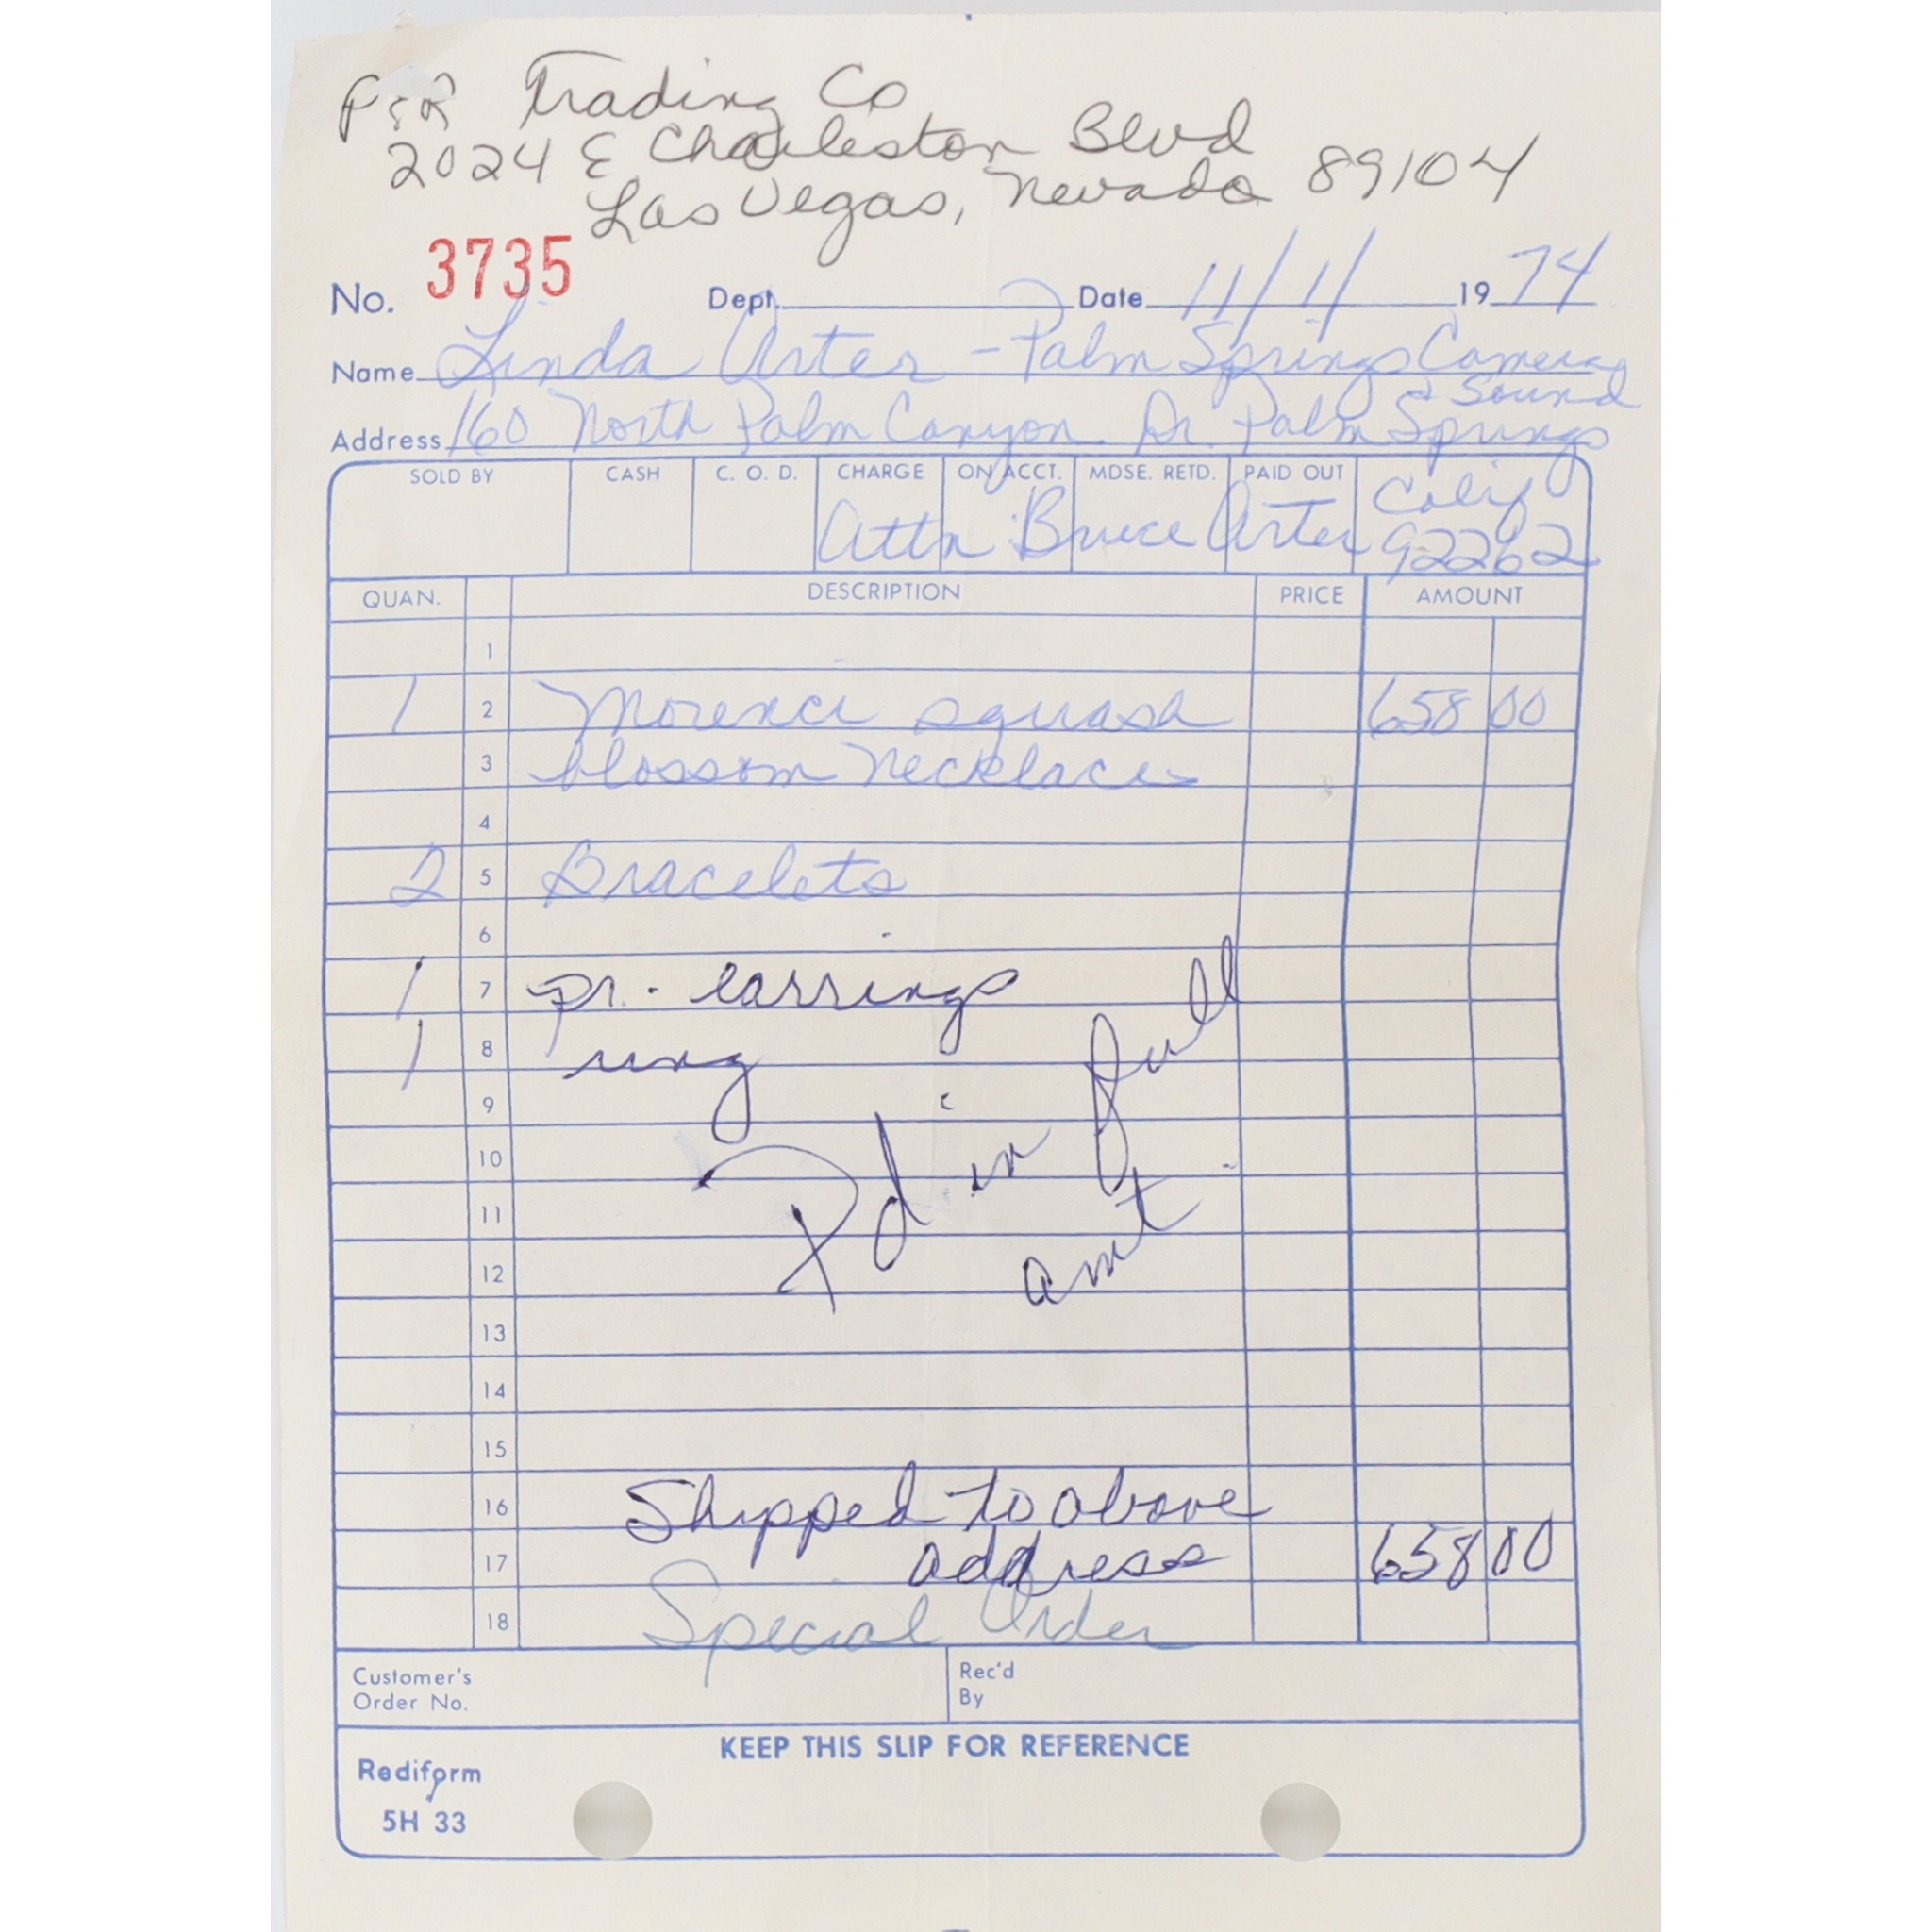 P & R Trading Co
2024 E Charleston Blvd
Las Vegas, Nevada 89104
No. 3735 Dept. Date 11/1/ 1974
Name Linda Arter - Palm Springs Camera
& Sound
Address 160 North Palm Canyon Dr. Palm Springs
SOLD BY CASH C. O. D. CHARGE ON ACCT. MDSE. RETD. PAID OUT Calif
Attn: Bruce Arter 92262
QUAN. DESCRIPTION PRICE AMOUNT
1
1 2 Morenci squash 658 00
3 blossom Necklace
4
2 5 Bracelets
6
1 7 pr. earrings
1 8 ring
9
10
11
12
Pd in full
amt
13
14
15
16 Shipped to above
17 address 658 00
18 Special Order
Customer's Rec'd
Order No. By
KEEP THIS SLIP FOR REFERENCE
Rediform
5H 33